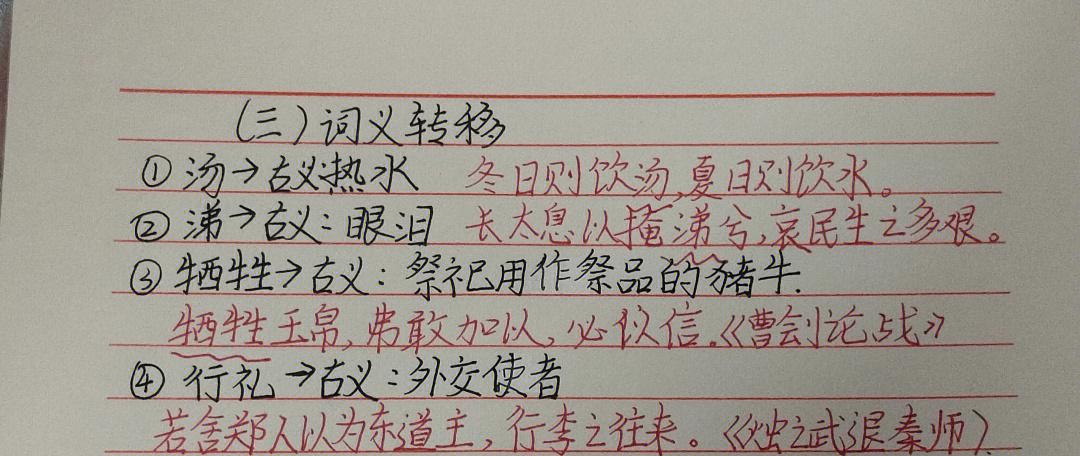 (三)词义转移
①汤→古义:热水 冬日则饮汤,夏日则饮水。
②涕→古义:眼泪 长太息以掩涕兮,哀民生之多艰。
③牺牲→古义:祭祀用作祭品的猪牛.
牺牲玉帛,弗敢加以,必似信。《曹刿论战》
④行礼→古义:外交使者
若舍郑人以为东道主,行李之往来。《烛之武退秦师》